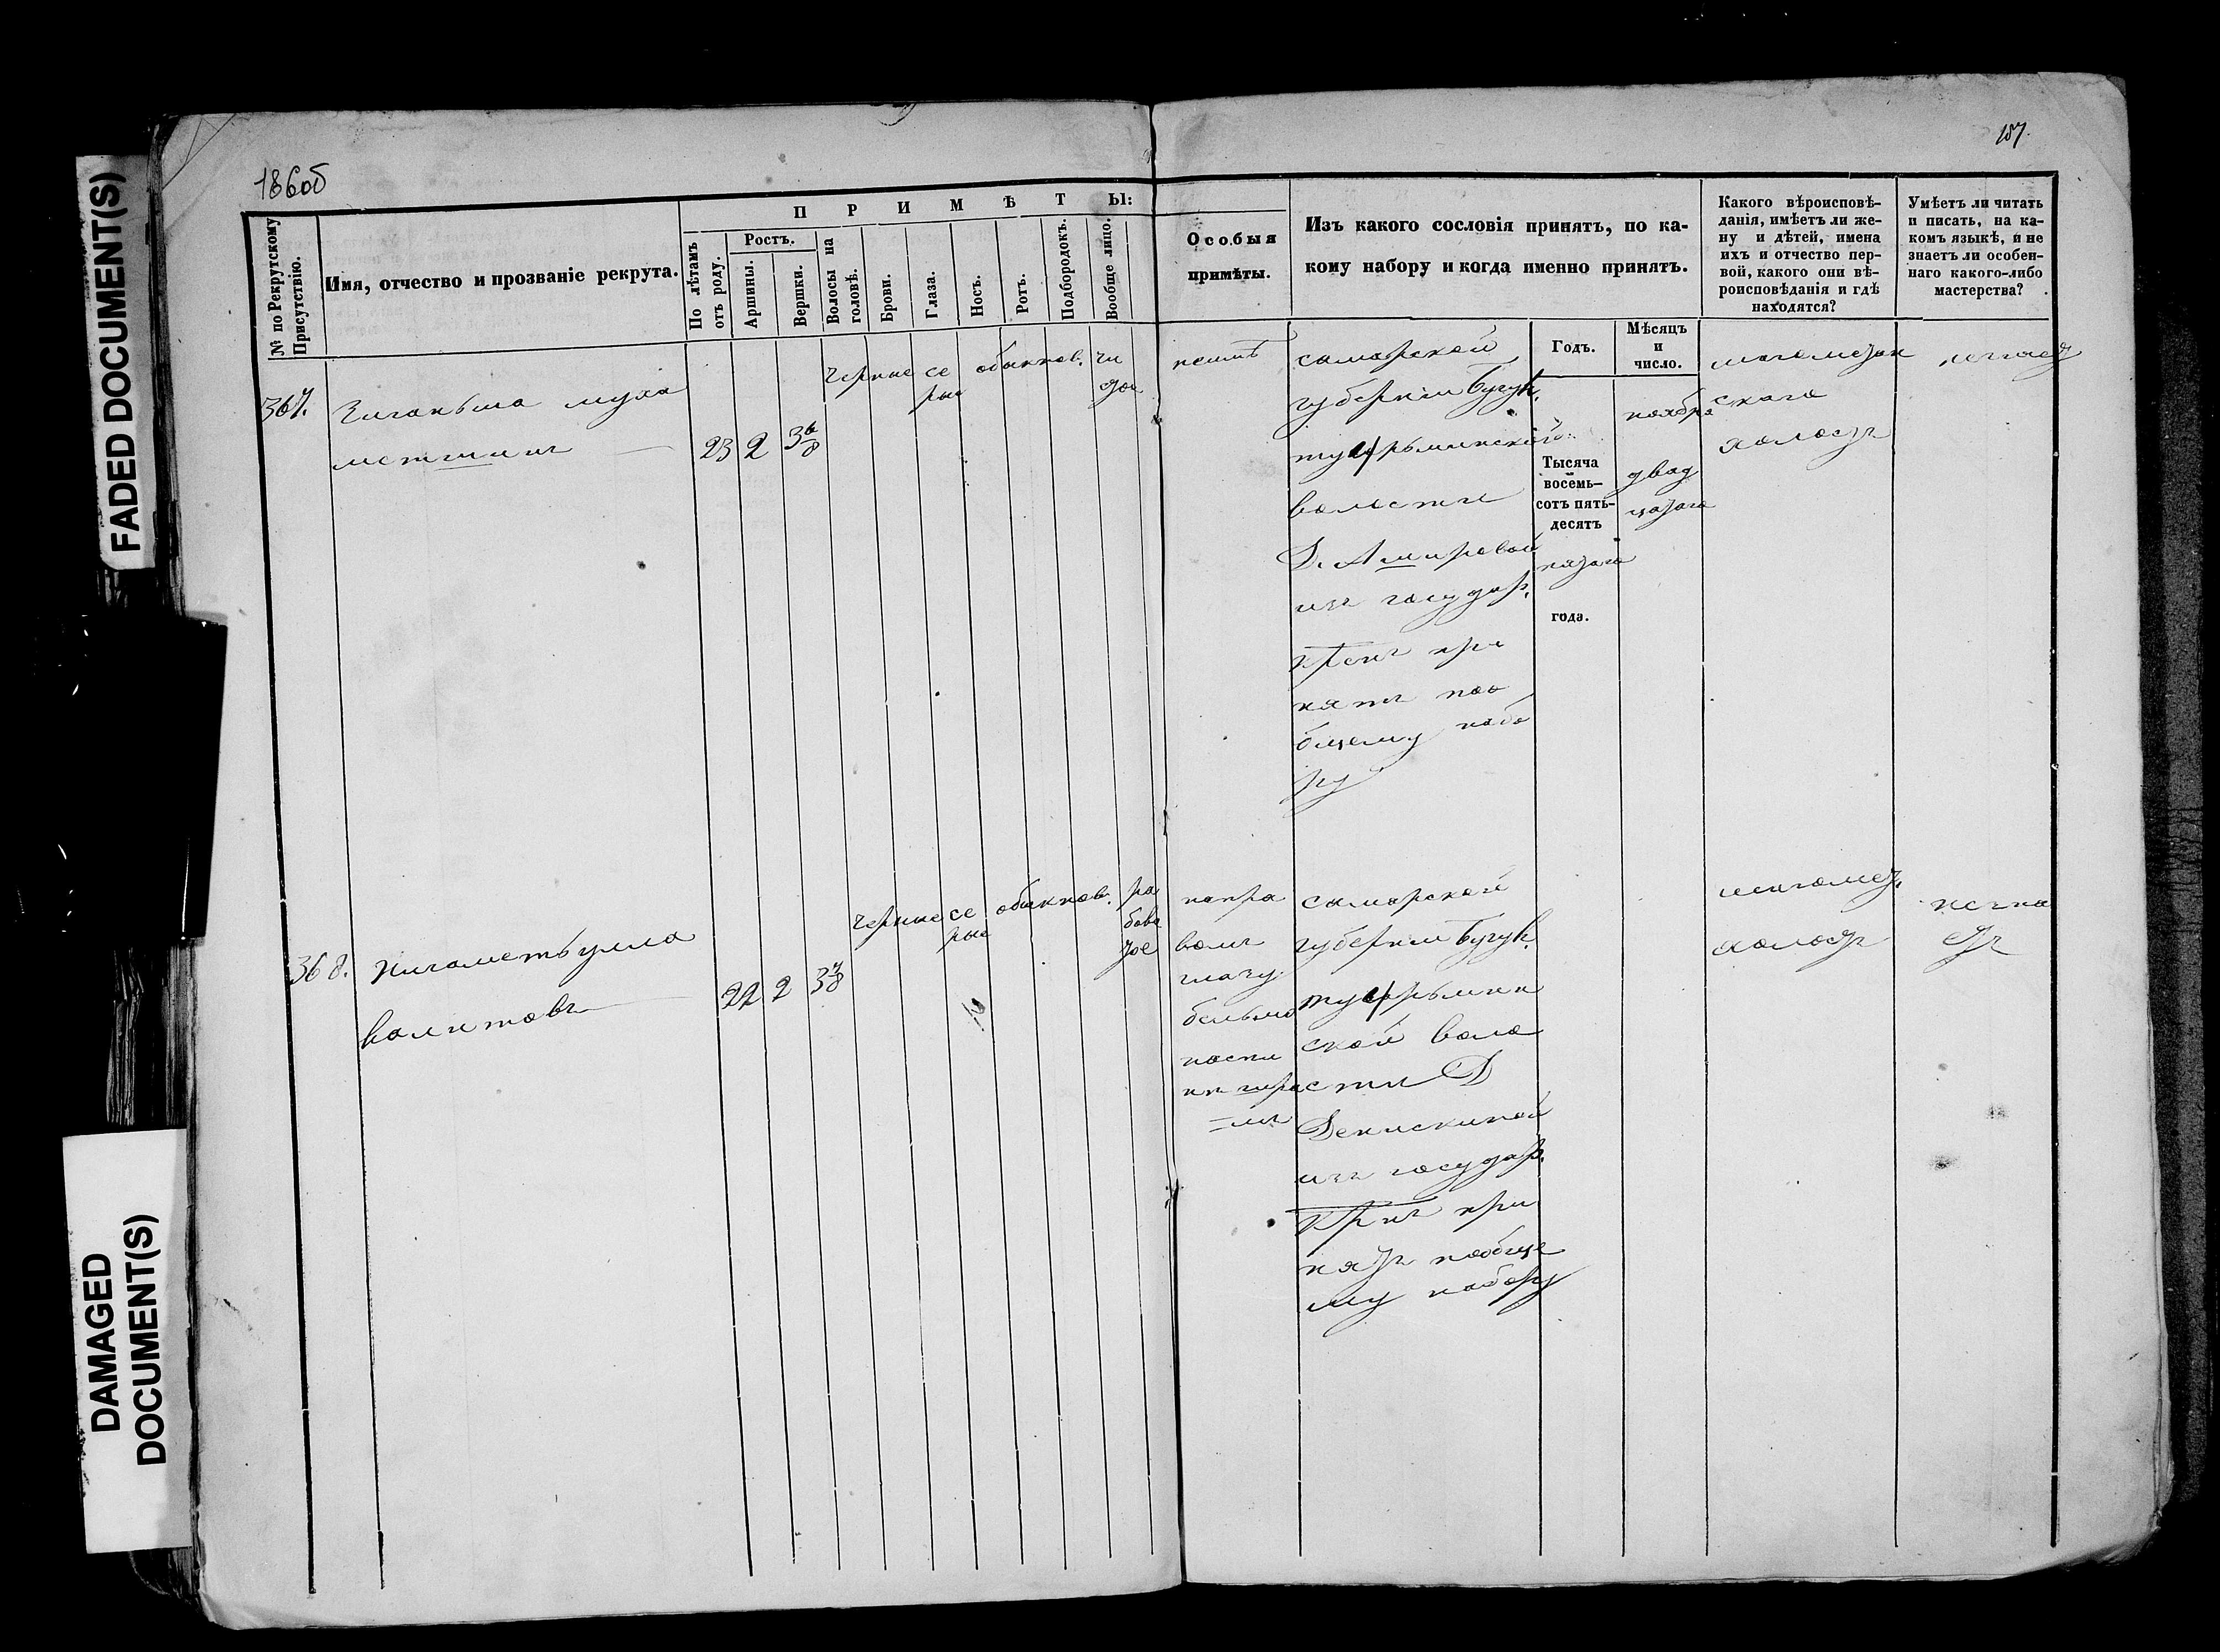 FADED DOCUMENT(S)
DAMAGED
DOCUMENT(S)
186об
187.
№ по Рекрутскому Присутствію.
Имя, отчество и прозваніе рекрута.
ПРИМѢТЫ:
По лѣтамъ отъ роду.
Ростъ.
Аршины.
Вершки.
Волосы на головѣ.
Брови.
Глаза.
Носъ.
Ротъ.
Подбородокъ.
Вообще лицо.
Особыя
примѣты.
Изъ какого сословія принятъ, по ка-
кому набору и когда именно принятъ.
Годъ.
Мѣсяцъ
и
число.
Какого вѣроисповѣ-
данія, имѣетъ ли же-
ну и дѣтей, имена
ихъ и отчество пер-
вой, какого они вѣ-
роисповѣданія и гдѣ
находятся?
Умѣетъ ли читать
и писать, на ка-
комъ языкѣ, и не
знаетъ ли особен-
наго какого-либо
мастерства?
367.
муха
метшинъ
23 2 3 6/8
черные
се
рые
обыкнов.
чи
стое
самарской
губерніи Бугул.
волости
Д. Амировой
изъ государ.
крест при
нятъ поо
бщему набо
ру
Тысяча
восемь-
сотъ пять-
десятъ
пятаго
года.
ноября
двад
цатаго
магометан
скаго
холостъ
368.
Нигаметьулла
валитовъ
22 2 3
черные
се
рые
обыкнов.
ря
бова
тое
направа
вомъ
глазу
бельмо
самарской
губерніи Бугул.
ской воло
сти Д
Денискиной
изъ государ.
крест при
нятъ пообще
му набору
магомет.
холостъ
незна
етъ